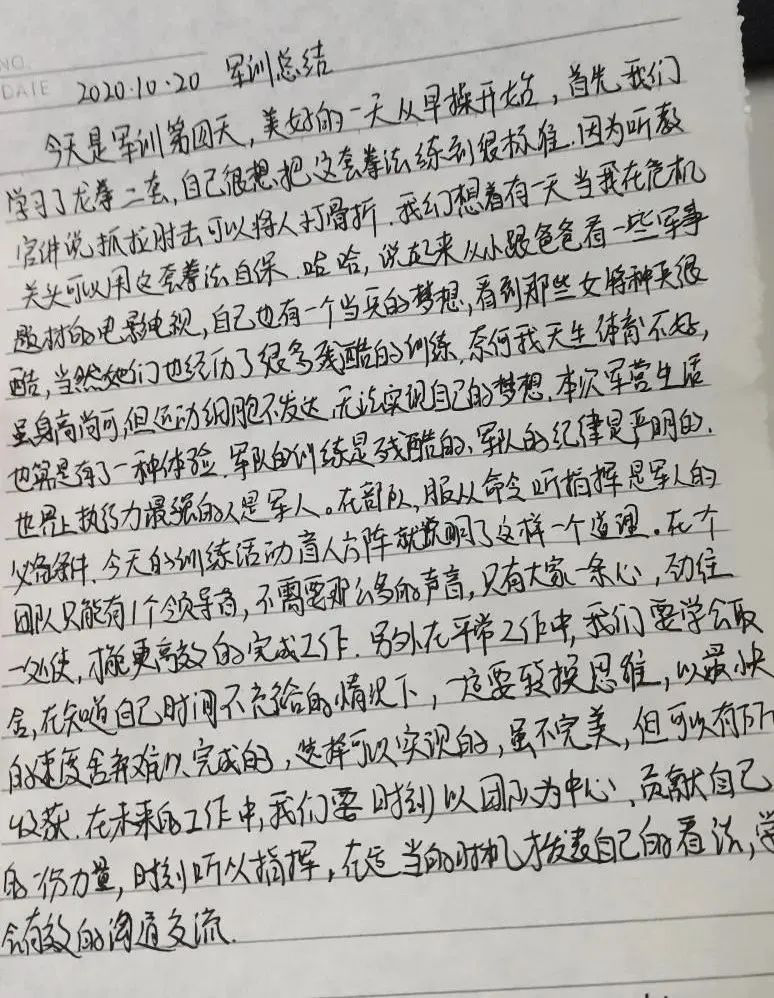 NO.
DATE 2020.10.20 军训总结
今天是军训第四天,美好的一天从早操开始,首先我们
学习了龙拳二套,自己很想把这套拳法练到很标准.因为听教
官讲说抓拉肘击可以将人打骨折.我幻想着有一天当我在危机
关头可以用这套拳法自保.哈哈,说起来从小跟爸爸看一些军事
题材的电影电视,自己也有一个当兵的梦想,看到那些女特种兵很
酷,当然她们也经历了很多残酷的训练,奈何我天生体育不好,
虽身高尚可,但运动细胞不发达,无法实现自己的梦想.本次军营生活
也算是有了一种体验.军队的训练是残酷的、军队的纪律是严明的.
世界上执行力最强的人是军人。在部队,服从命令听指挥是军人的
必备条件.今天的训练活动盲人方阵就说明了这样一个道理。在个
团队只能有1个领导者,不需要那么多的声音,只有大家一条心,劲往
一处使,才能更高效的完成工作.另外在平常工作中,我们要学会取
舍,在知道自己时间不充裕的情况下,一定要转换思维,以最快
的速度舍弃难以完成的,选择可以实现的,虽不完美,但可以有所
收获.在未来的工作中,我们要时刻以团队为中心,贡献自己
的一份力量,时刻听从指挥,在适当的时机才发表自己的看法,学
会有效的沟通交流.